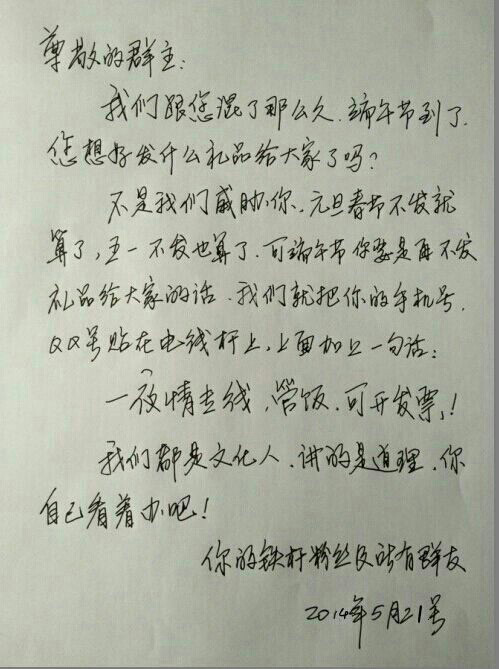 尊敬的群主:
我们跟您混了那么久.端午节到了.
您想好发什么礼品给大家了吗?
不是我们威胁你.元旦春节不发就
算了,五一不发也算了.可端午节你要是再不发
礼品给大家的话.我们就把你的手机号.
QQ号贴在电线杆上,上面加上一句话:
一夜情专线,管饭.可开发票,!
我们都是文化人.讲的是道理.你
自己看着办吧!
你的铁杆粉丝及所有群友
2014年5月21号